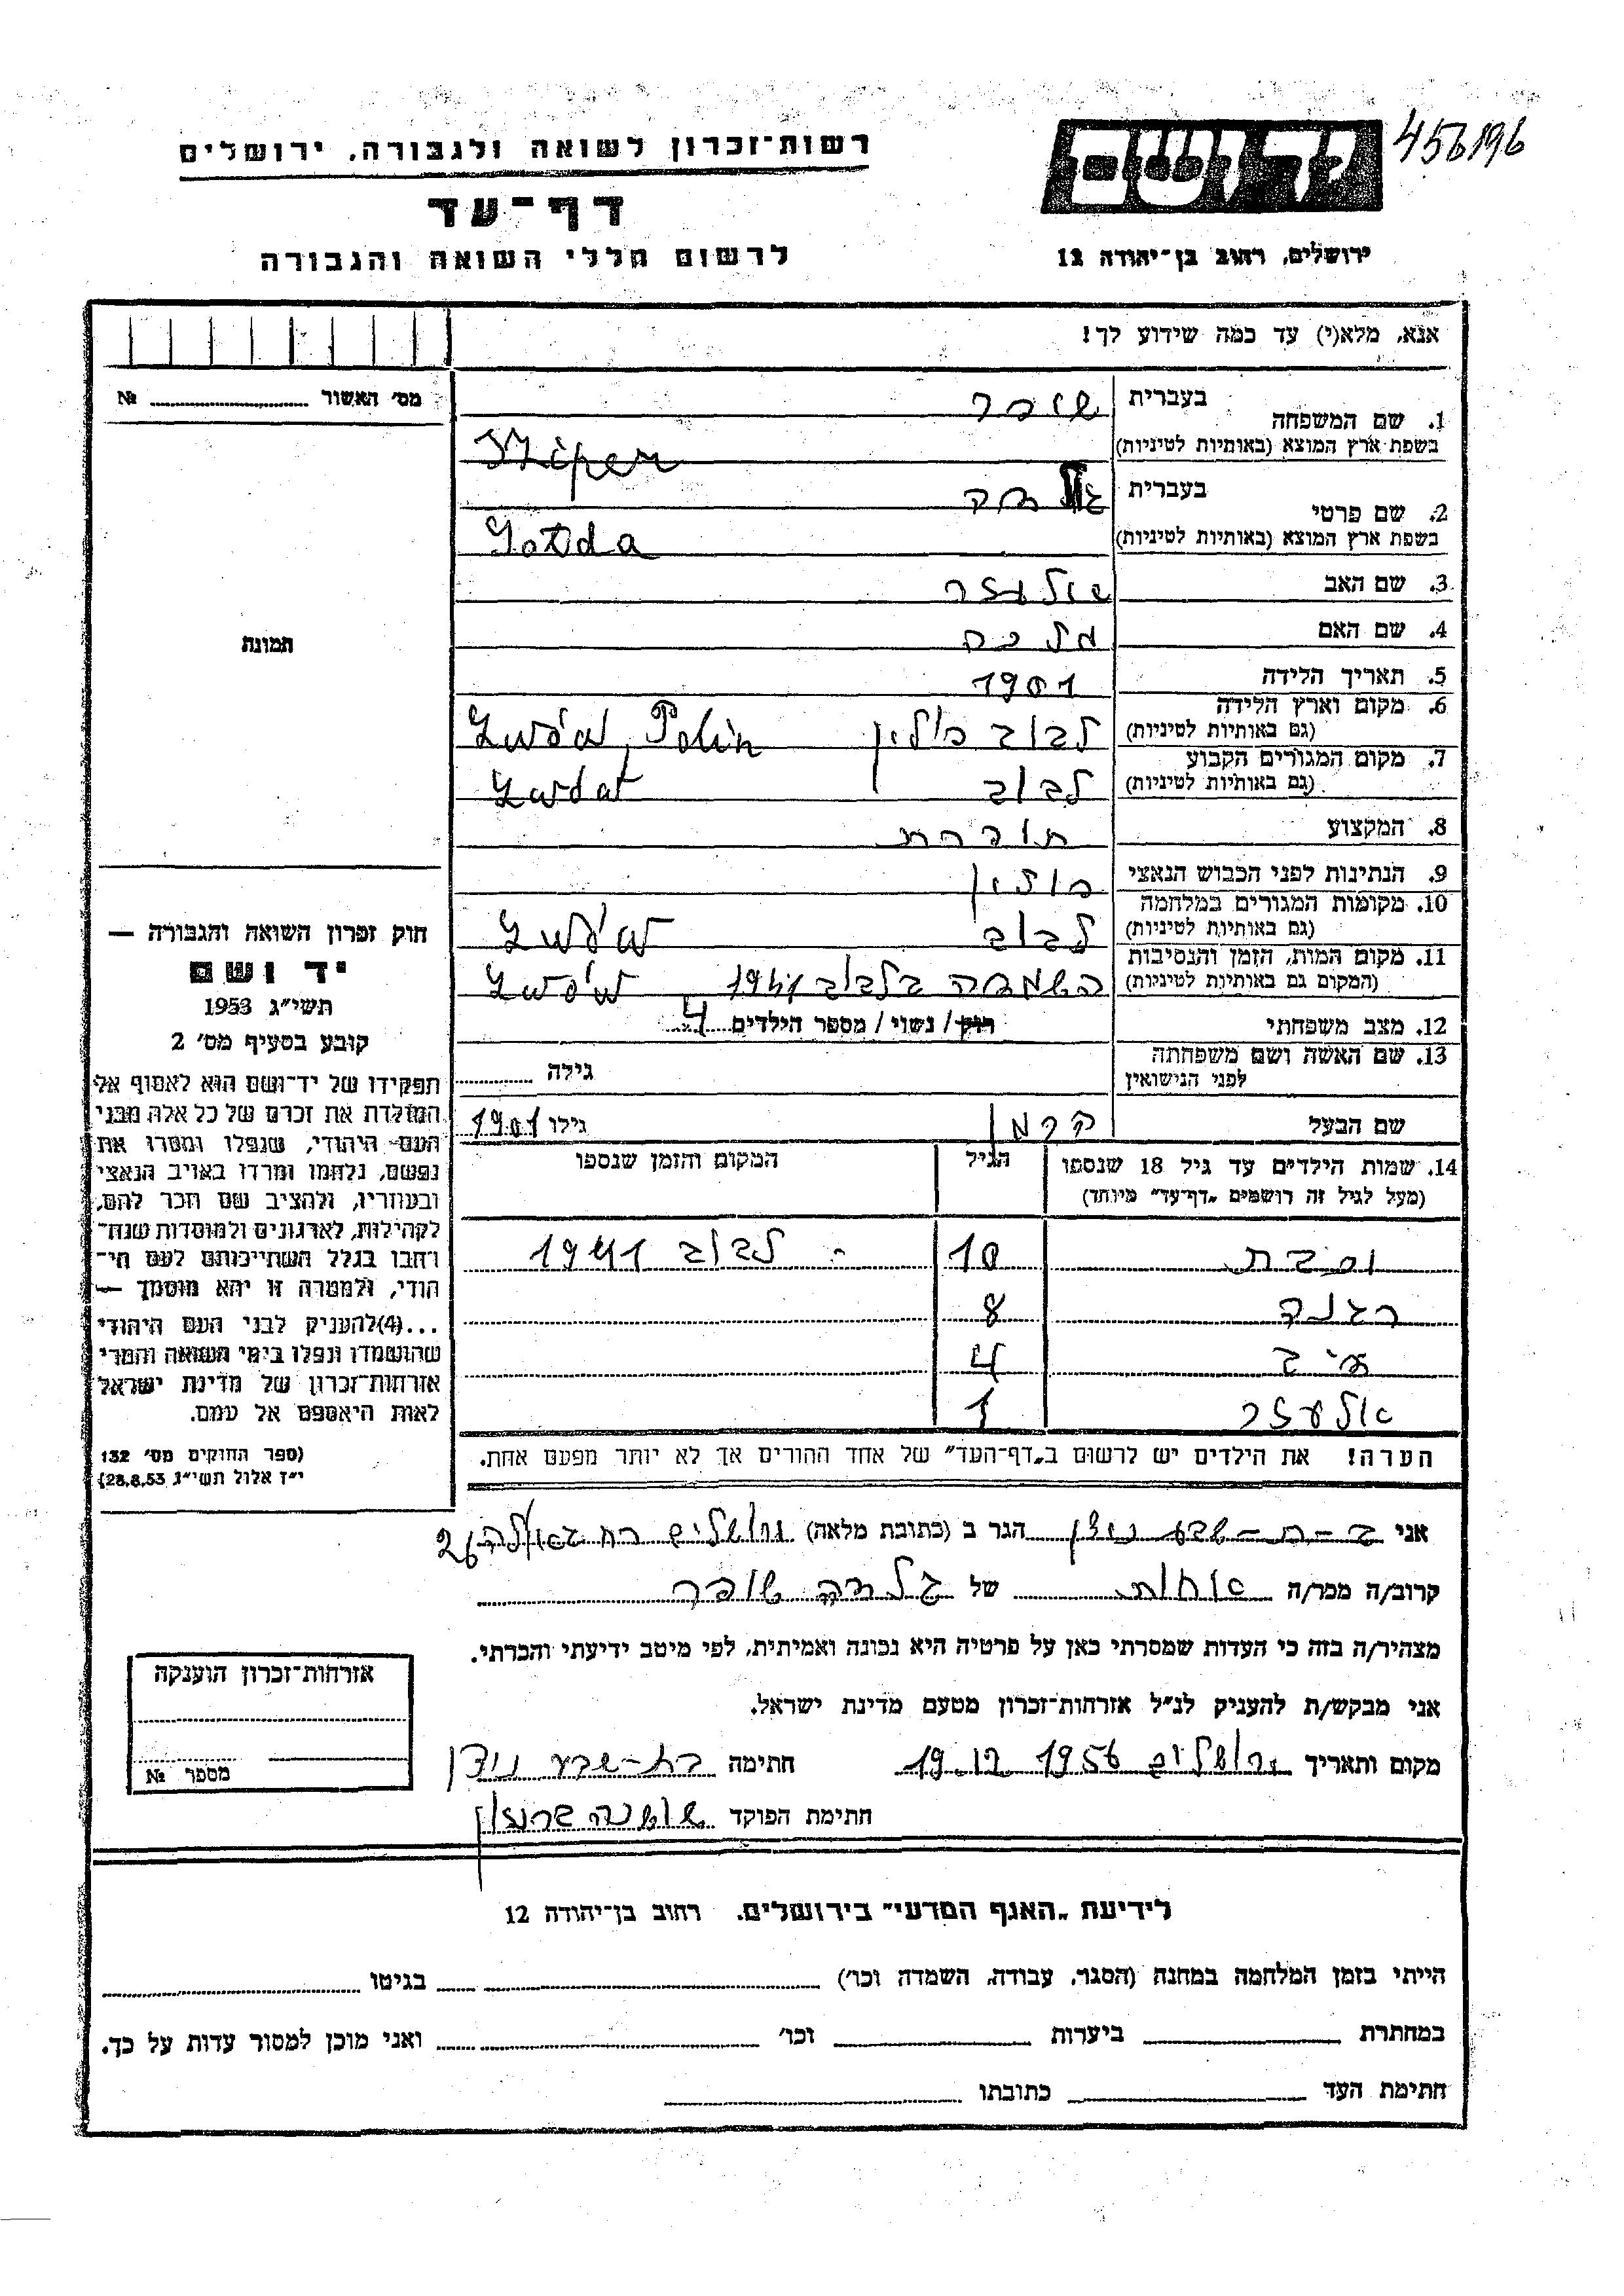 456196
רשות־זכרון לשואה ולגבורה, ירושלים
דף־עד
לרשום חללי השואה והגבורה
ידושם
ירושלים, רחוב בן־יהודה 12
אנא, מלא(י) עד כמה שידוע לך!
מס' האשור № 
תמונה
1. שם המשפחה
בעברית שופר
בשפת ארץ המוצא (באותיות לטיניות) Sziper
2. שם פרטי
בעברית
בשפת ארץ המוצא (באותיות לטיניות)
3. שם האב אלעזר
4. שם האם מלכה
5. תאריך הלידה 1901
6. מקום וארץ הלידה
(גם באותיות לטיניות) לבוב פולין Lwów, Polin
7. מקום המגורים הקבוע
(גם באותיות לטיניות) לבוב
8. המקצוע סוחרת
9. הנתינות לפני הכבוש הנאצי פולין
10. מקומות המגורים במלחמה
(גם באותיות לטיניות) לבוב Lwów
11. מקום המות, הזמן והנסיבות
(המקום גם באותיות לטיניות) השמדה בלבוב 1941 Lwów
12. מצב משפחתי רוק / נשוי / מספר הילדים 4
13. שם האשה ושם משפחתה
לפני הנישואין
גילה
שם הבעל הרמן גילו 1901
14. שמות הילדים עד גיל 18 שנספו
(מעל לגיל זה רושמים „דף־עד" מיוחד)
הגיל
המקום והזמן שנספו
10 לבוב 1941
רגינה 8
4
אלעזר 1
הערה! את הילדים יש לרשום ב„דף־העד" של אחד ההורים אך לא יותר מפעם אחת.
חוק זכרון השואה והגבורה —
יד ושם
תשי״ג 1953
קובע בסעיף מס' 2
תפקידו של יד־ושם הוא לאסוף אל
המולדת את זכרם של כל אלה מבני
העם היהודי, שנפלו ומסרו את
נפשם, נלחמו ומרדו באויב הנאצי
ובעוזריו, ולהציב שם וזכר להם,
לקהילות, לארגונים ולמוסדות שנח־
רחבו בגלל השתייכותם לעם הי־
הודי, ולמטרה זו יהא מוסמך —
...(4)להעניק לבני העם היהודי
שהושמדו ונפלו בימי השואה והמרי
אזרחות־זכרון של מדינת ישראל
לאות היאספם אל עמם.
(ספר החוקים מס' 132
י״ז אלול תשי״ג 28.8.53)
אני בת-שבע הגר ב (כתובת מלאה) ירושלים רח גאולה 26
קרוב/ה מכר/ה אחות של שופר
מצהיר/ה בזה כי העדות שמסרתי כאן על פרטיה היא נכונה ואמיתית, לפי מיטב ידיעתי והכרתי.
אני מבקש/ת להעניק לנ״ל אזרחות־זכרון מטעם מדינת ישראל.
מקום ותאריך ירושלים 1956 .12 .19 חתימה בת-שבע
חתימת הפוקד שושנה
אזרחות־זכרון הוענקה
מספר №
לידיעת „האגף המדעי" בירושלים, רחוב בן־יהודה 12
הייתי בזמן המלחמה במחנה (הסגר, עבודה, השמדה וכו') בגיטו
במחתרת ביערות וכו' ואני מוכן למסור עדות על כך.
חתימת העד כתובתו